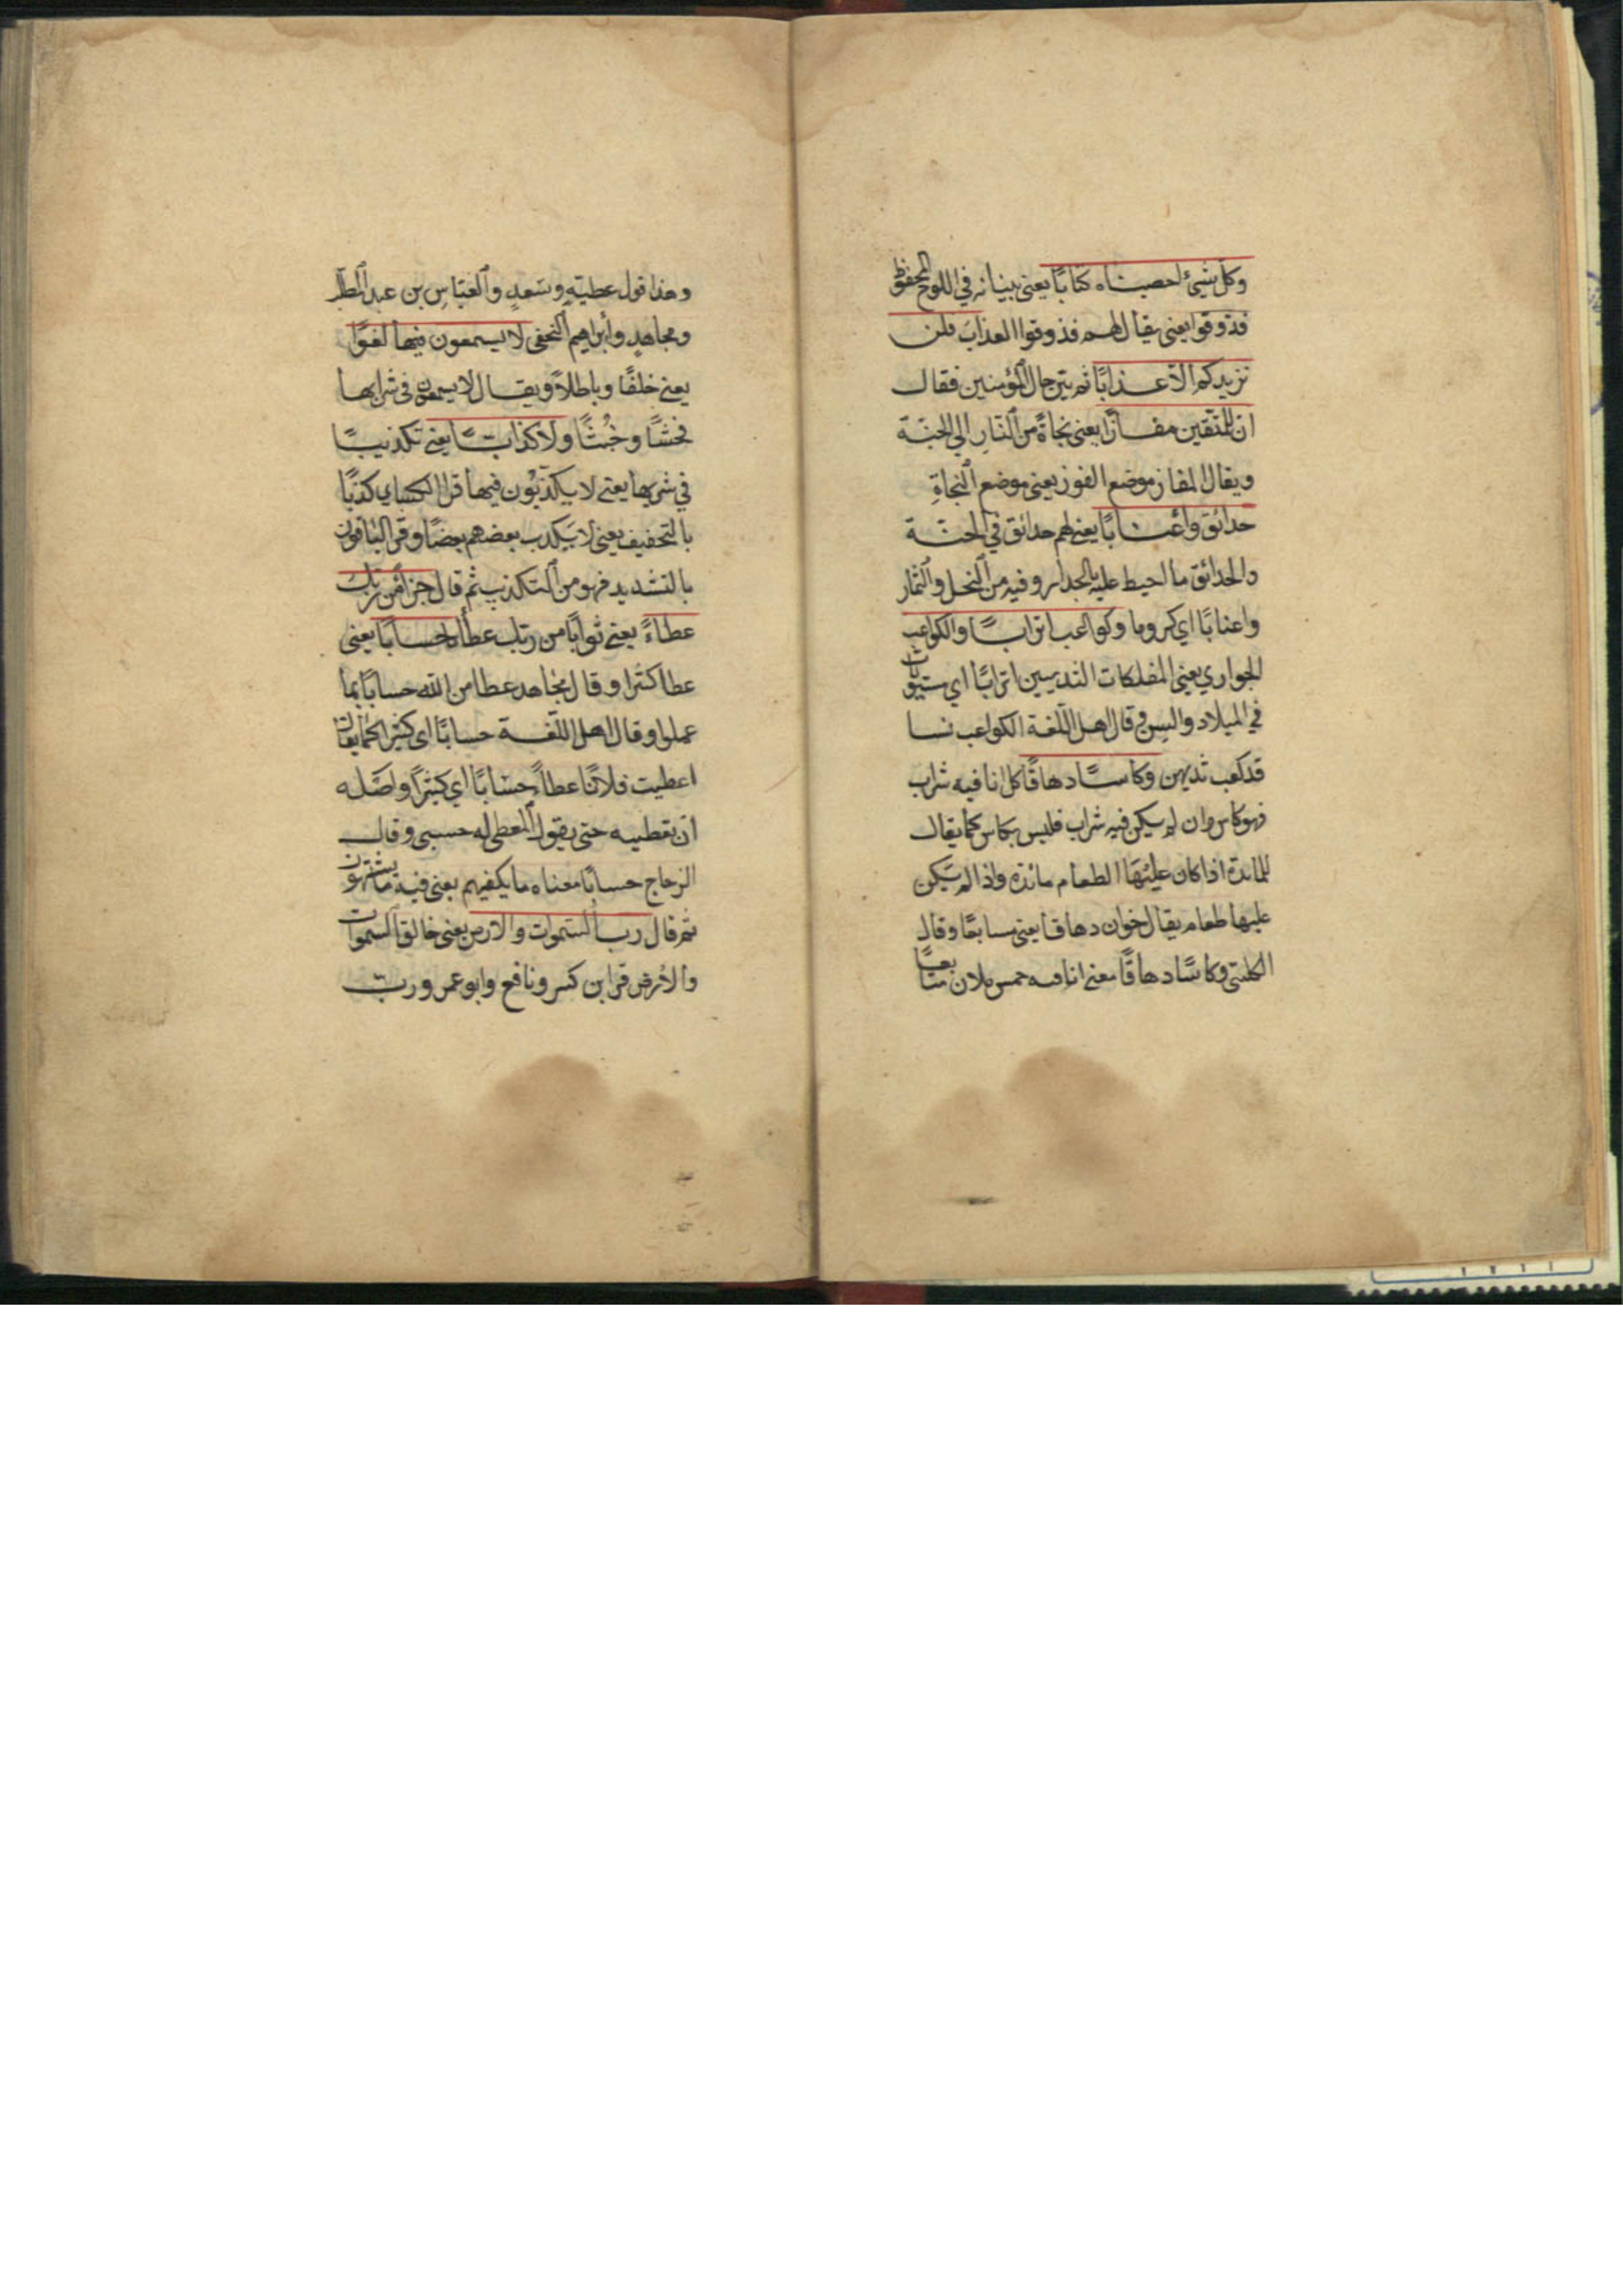 وكل شيئ احصيناه كتابًا يعني بينانه في اللوح المحفوظ
فذوقوا يعني يقال لهم فذوقوا العذاب فلن
نزيدكم الا عذابًا ثم بين حال المؤمنين فقال
ان للمتقين مفازًا يعني نجاةً من النارِ الي الجنة
ويقال المفاز موضع الفوز يعني موضع النجاةِ
حدائق واعنابًا يعني لهم حدائق في الجنة
والحدائق ما احيط عليه بالجدار وفيه من النخل والثمار
واعنابًا اي كروما وكواعب اترابًا والكواعب
الجواري يعني المفلكات الثديين اترابًا اي مستويات
في الميلاد والسن وقال اهل اللغة الكواعب نسا
قد كعب ثديهن وكاسًا دهاقًا كل انا فيه شراب
فهو كاس وان لم يكن فيه شراب فليس بكاس كما يقال
للمائدة اذا كان عليها الطعام مائدة واذا لم يكن
عليها طعام يقال خوان دهاقا يعني سابعًا وقال
الكلبي وكاسًا دهاقًا يعني انا فيه خمر ملان متتابعًا
وهذا قول عطيةِ وسَعدٍ والعَبّاسِ بن عبد المطلب
ومجاهدٍ وابراهيم النخعي لا يسمعون فيها لغوًا
يعني خلفًا وباطلاً ويقال لا يسمعون في شرابها
فحشًا وخُبثًا ولا كذابًا يعني تكذيبًا
في شربها يعني لا يكذبُون فيها قرا الكساي كذبًا
بالتخفيف يعني لا يَكذب بعضهم بعضًا وقرا الباقون
بالتشديد فهو من التكذيب ثم قال جزاءً من ربك
عطاءً يعني ثوابًا من ربك عطاء حسابًا يعني
عطا كثيرا وقال مجاهد عطا من الله حسابًا بما
عملوا وقال اهل اللغة حسابًا اي كثيرا كما يقال
اعطيت فلانًا عطاءً حسَابًا اي كثيرًا واصله
ان تعطيه حتي يقول المعطي له حسبي وقال
الزجاج حسابًا معناه ما يكفيهم يعني فيه ما يشتهون
ثم قال رب السموات والارض يعني خالق السموات
والارض قرا ابن كثير ونافع وابو عمرو ربّ